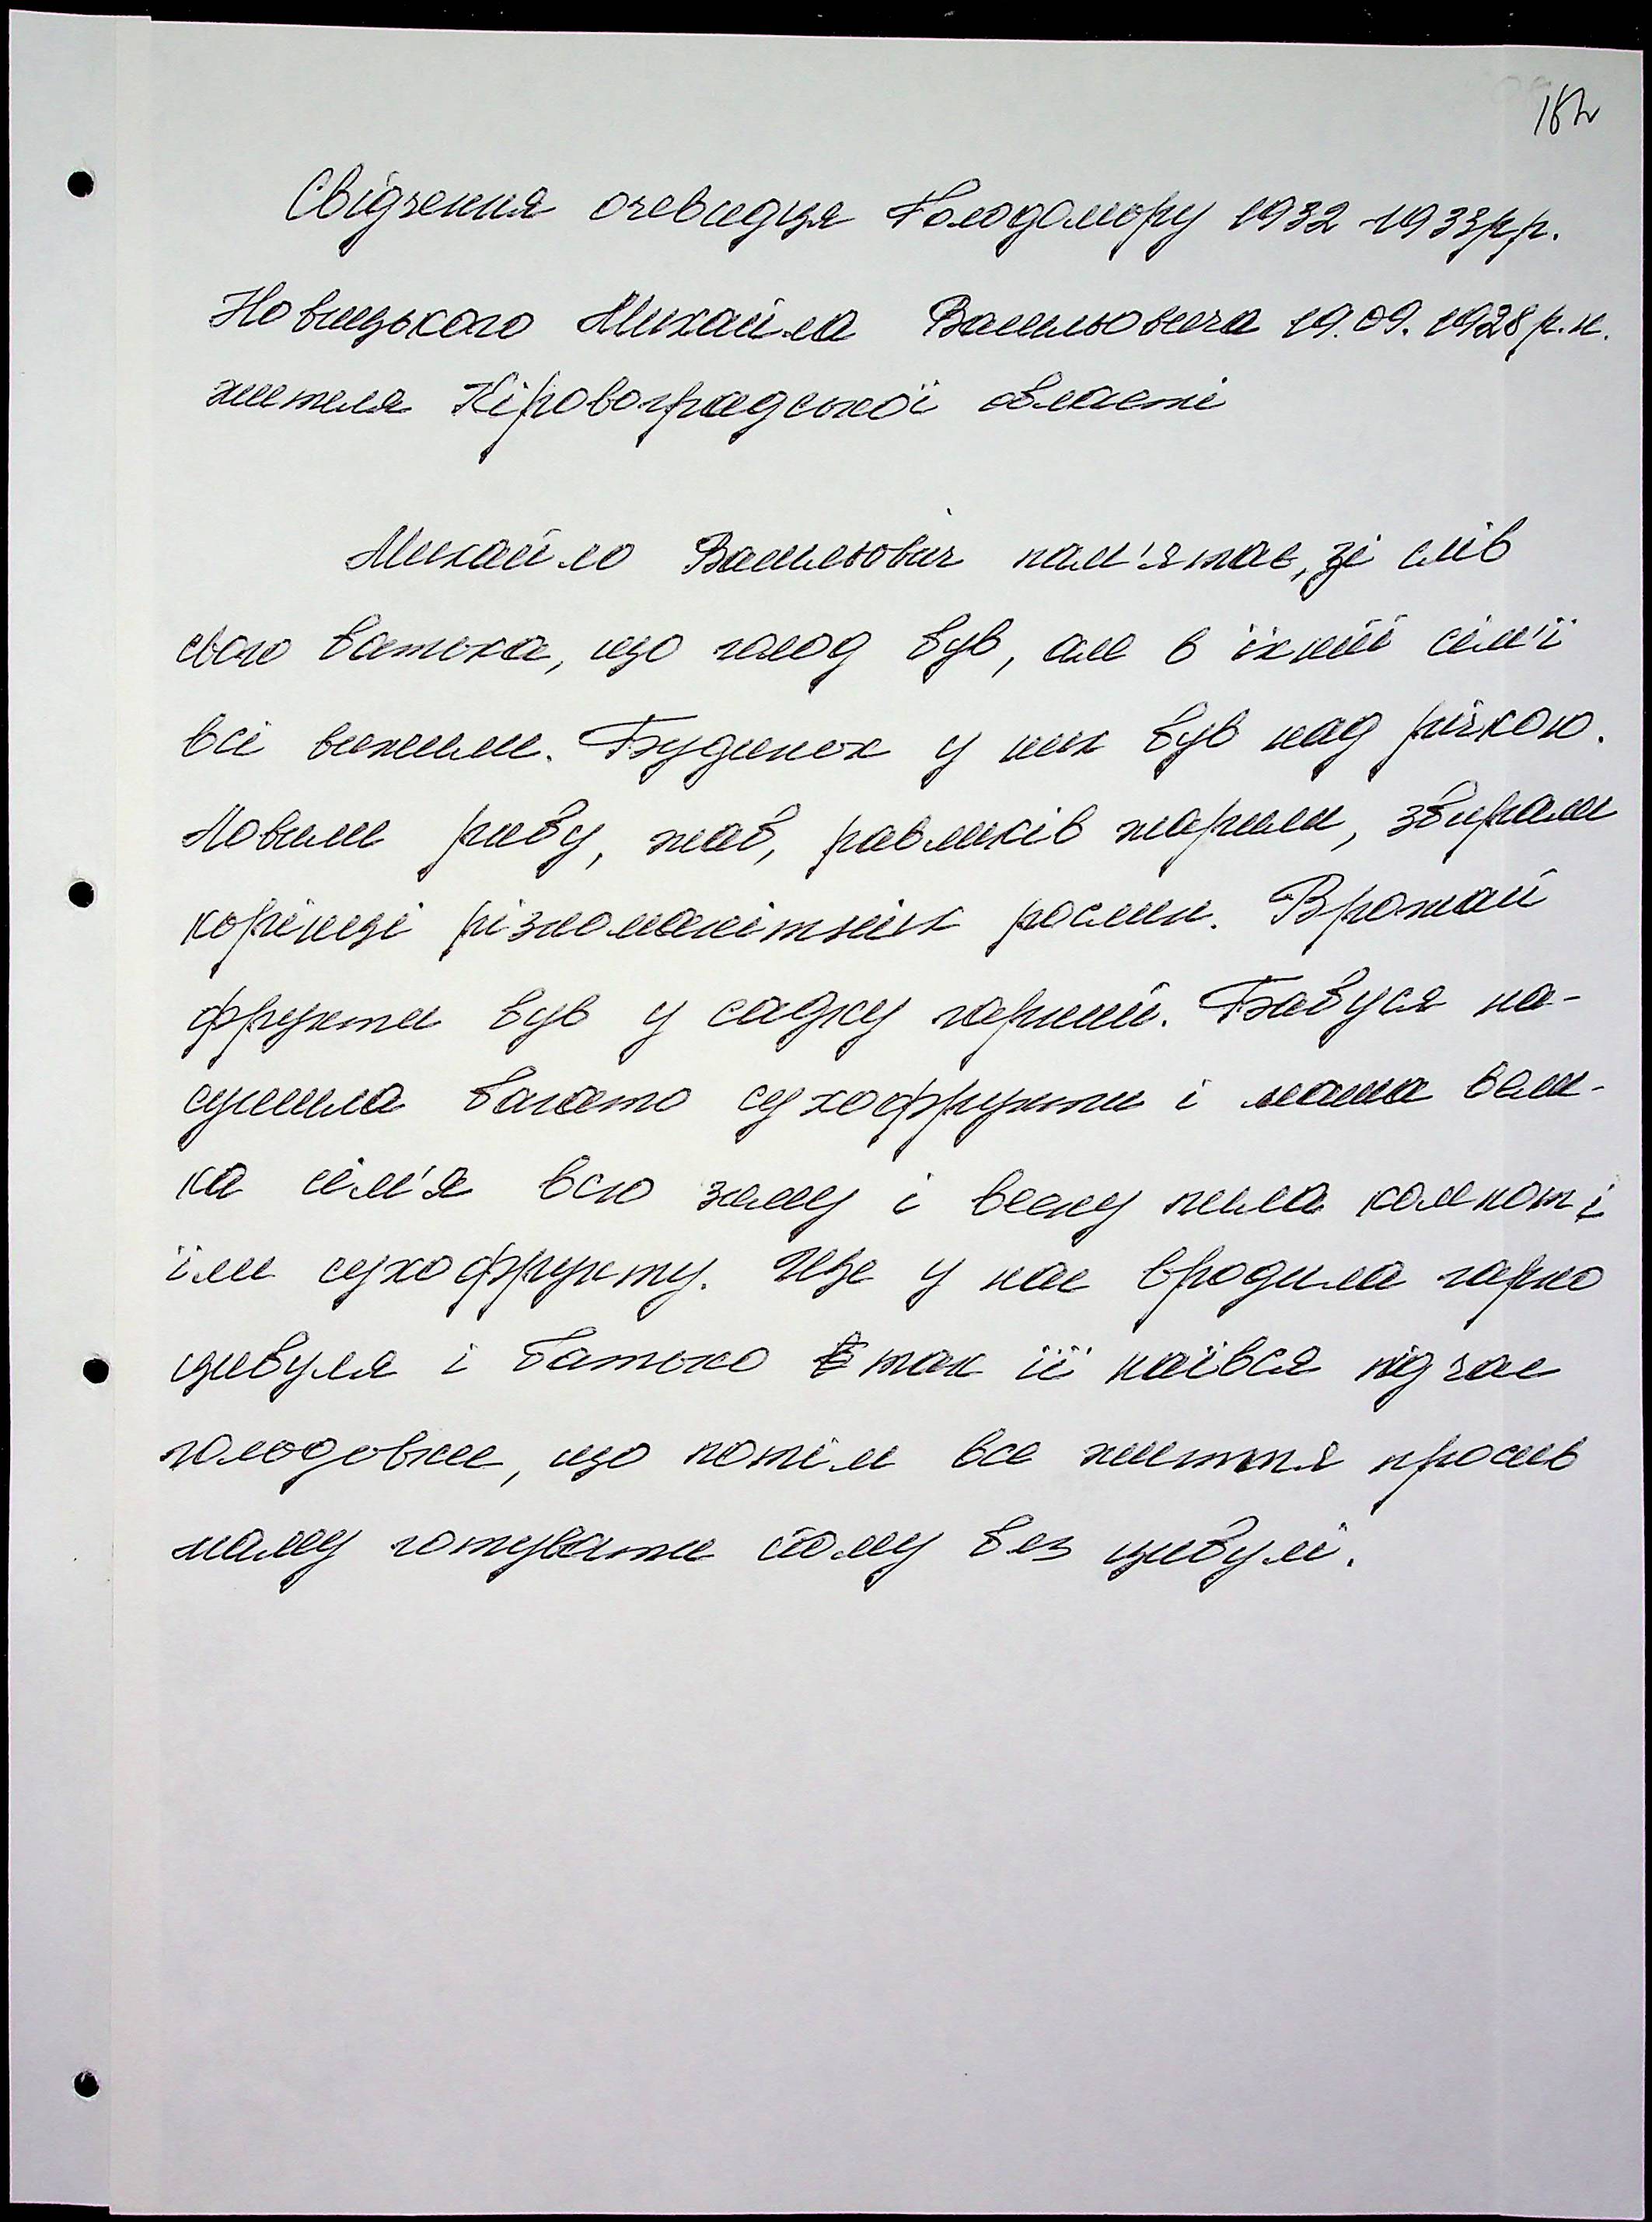 182
Свідчення очевидця Голодомору 1932-1933р.р.
Новицького Михайла Васильовича 19.09.1928 р.н.
жителя Кіровоградської області
Михайло Васильович пам'ятає, зі слів
свого батька, що голод був, але в їхній сім'ї
всі вижили. Будинок у них був над річкою.
Ловили рибу, жаб, равликів жарили, збирали
корінці різноманітних рослин. Врожай
фруктів був у садку гарний. Бабуся на-
сушила багато сухофруктів і наша вели-
ка сім'я всю зиму і весну пила компот і
їли сухофрукту. Ще у нас вродила гарно
цибуля і батько так її наївся під час
голодовки, що потім все життя просив
маму готувати йому без цибулі.